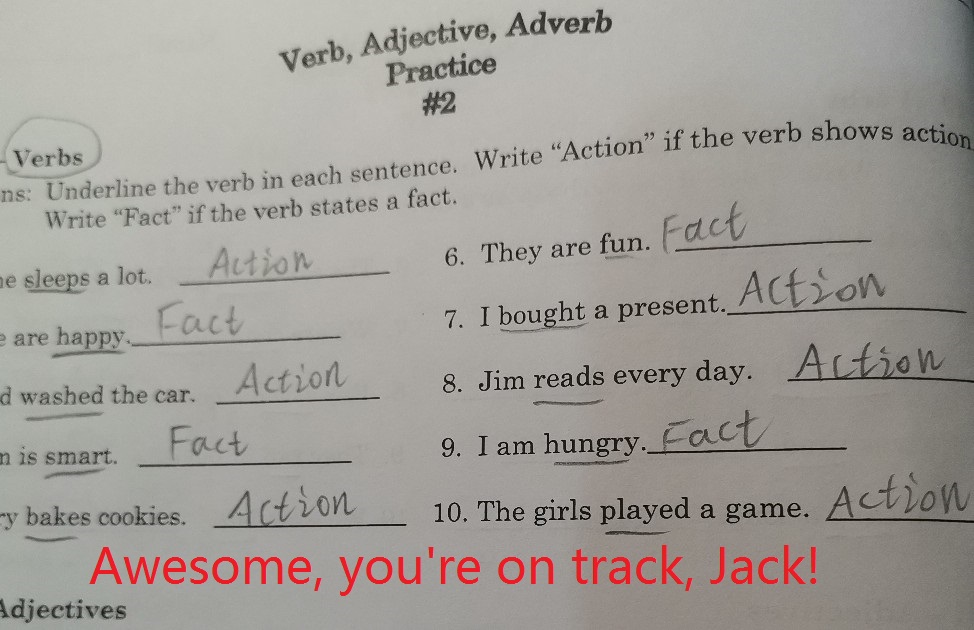 Verb, Adjective, Adverb
Practice
#2
Verbs
ns: Underline the verb in each sentence. Write "Action" if the verb shows action
Write "Fact" if the verb states a fact.
e sleeps a lot. Action
e are happy. Fact
d washed the car. Action
n is smart. Fact
ry bakes cookies. Action
6. They are fun. Fact
7. I bought a present. Action
8. Jim reads every day. Action
9. I am hungry. Fact
10. The girls played a game. Action
Awesome, you're on track, Jack!
Adjectives